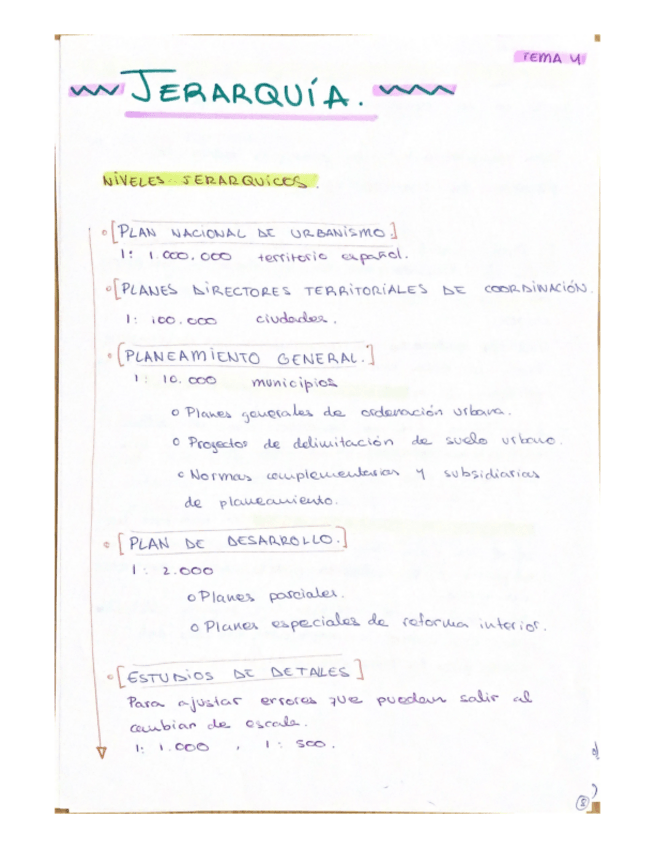 TEMA 4
JERARQUÍA.
NIVELES JERARQUICOS.
[PLAN NACIONAL DE URBANISMO.]
1: 1.000.000 territorio español.
[PLANES DIRECTORES TERRITORIALES DE COORDINACIÓN.
1: 100.000 ciudades.
[PLANEAMIENTO GENERAL.]
1: 10.000 municipios
o Planes generales de ordenación urbana.
o Proyectos de delimitación de suelo urbano.
o Normas complementarias y subsidiarias
de planeamiento.
[PLAN DE DESARROLLO.]
1: 2.000
o Planes parciales.
o Planes especiales de reforma interior.
[ESTUDIOS DE DETALES]
Para ajustar errores que puedan salir al
cambiar de escala.
1: 1.000 , 1: 500.